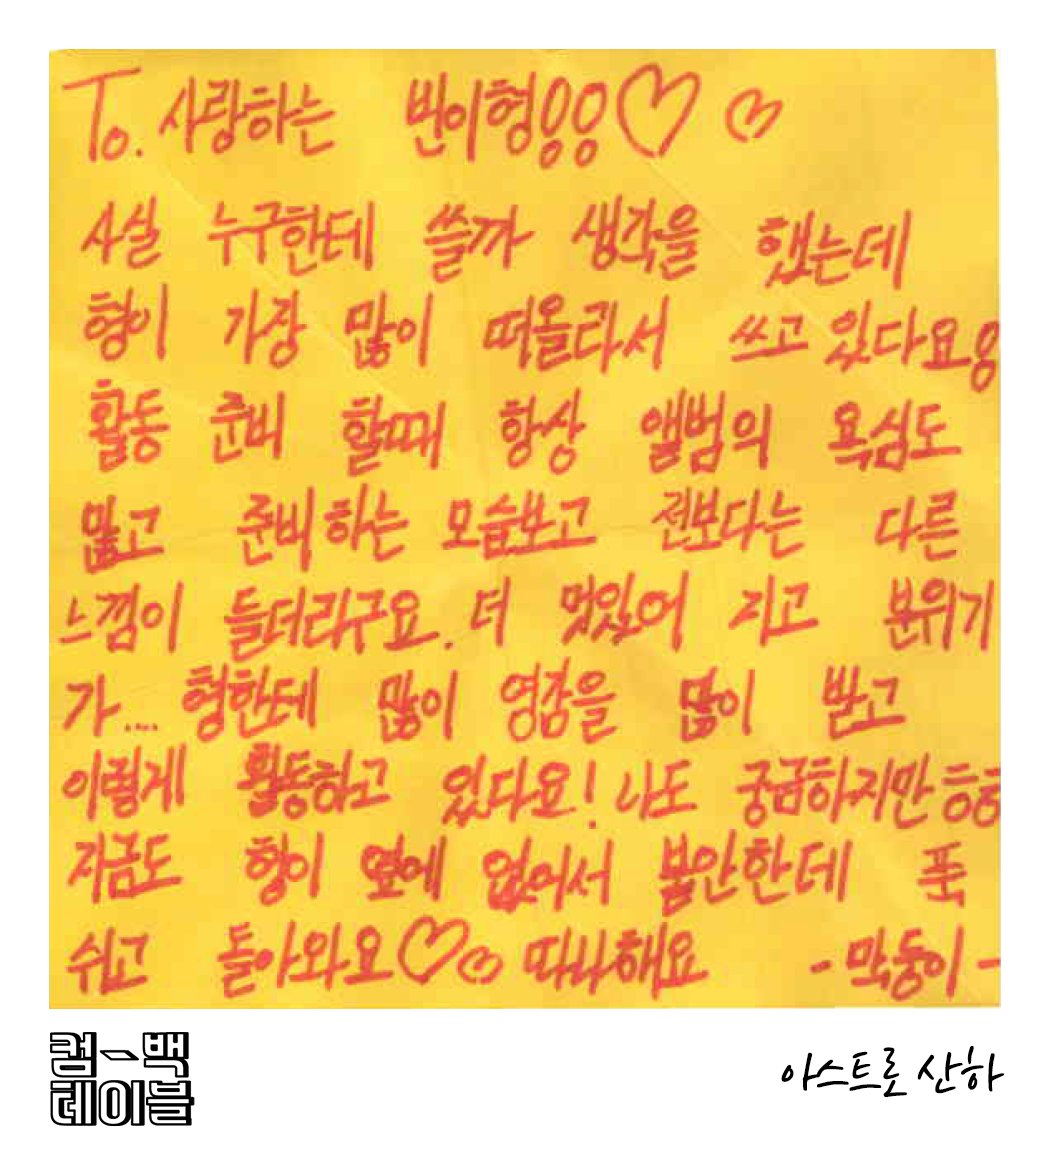 To. 사랑하는 빈이형!!♡♡
사실 누구한테 쓸까 생각을 했는데
형이 가장 많이 떠올라서 쓰고 있다요!
활동 준비 할때 항상 앨범의 욕심도
많고 준비하는 모습보고 전보다는 다른
느낌이 들더라구요. 더 멋있어 지고 분위기
가.... 형한테 많이 영감을 많이 받고
이렇게 활동하고 있다요! 나도 궁금하지만 흠흠
지금도 형이 옆에 없어서 불안한데 푹
쉬고 돌아와요♡♡ 따랑해요 -막둥이-
컴-백
테이블
아스트로 산하